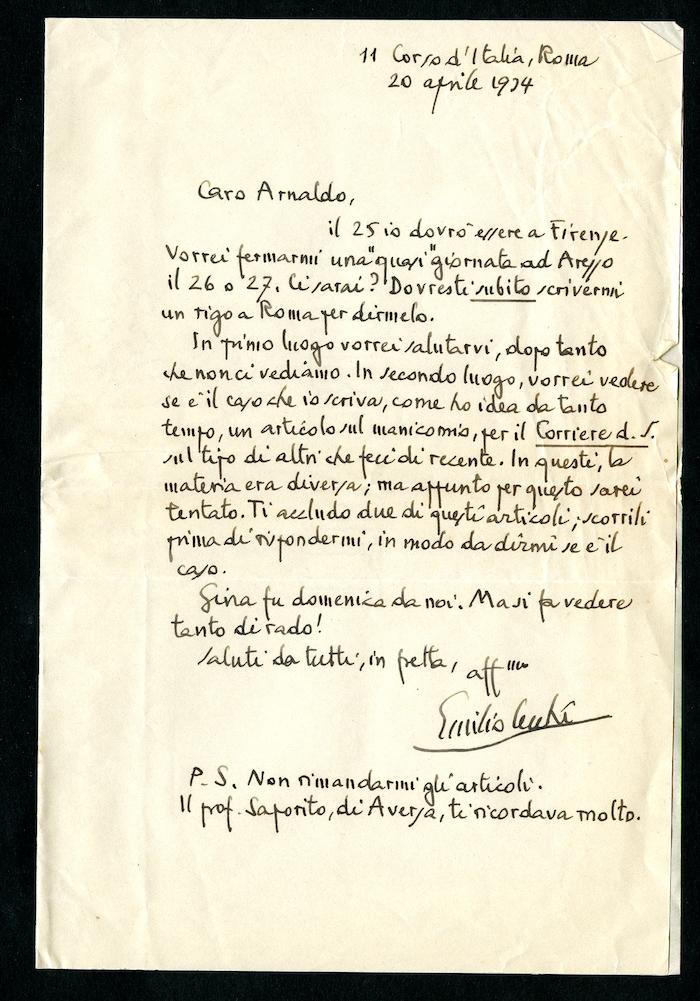 11 Corso d'Italia, Roma
20 aprile 1934
Caro Arnaldo,
il 25 io dovrò essere a Firenze.
Vorrei fermarmi una "quasi" giornata ad Arezzo
il 26 o 27. Ci sarai? Dovresti subito scrivermi
un rigo a Roma per dirmelo.
In primo luogo vorrei salutarvi, dopo tanto
che non ci vediamo. In secondo luogo, vorrei vedere
se è il caso che io scriva, come ho idea da tanto
tempo, un articolo sul manicomio, per il Corriere d. S.
sul tipo di altri che feci di recente. In questi, la
materia era diversa; ma appunto per questo sarei
tentato. Ti accludo due di questi articoli; scorrili
prima di rispondermi, in modo da dirmi se è il
caso.
Gina fu domenica da noi. Ma si fa vedere
tanto di rado!
Saluti da tutti, in fretta, aff.mo
Emilio Cecchi
P.S. Non rimandarmi gli articoli.
Il prof. Saporito, di Aversa, ti ricordava molto.